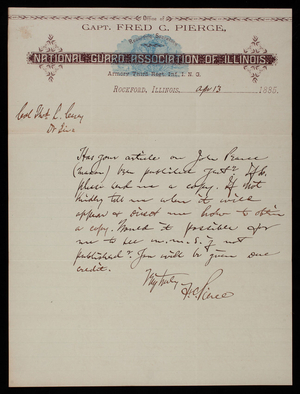 Office of
CAPT. FRED C. PIERCE,
NATIONAL GUARD ASSOCIATION OF ILLINOIS.
Armory Third Regt. Inf., I. N. G.
ROCKFORD, ILLINOIS, Apr 13 1885.
Col Thos L. Casey
Dr Sir:
Has your article on John Pierce
(mason) been published yet? If so
please send me a copy. If not
kindly tell me when it will
appear & direct me how to obtain
a copy. Would it possible for
me to see m.m.S. if not
published? You will be given due
credit.
Very truly
F C Pierce